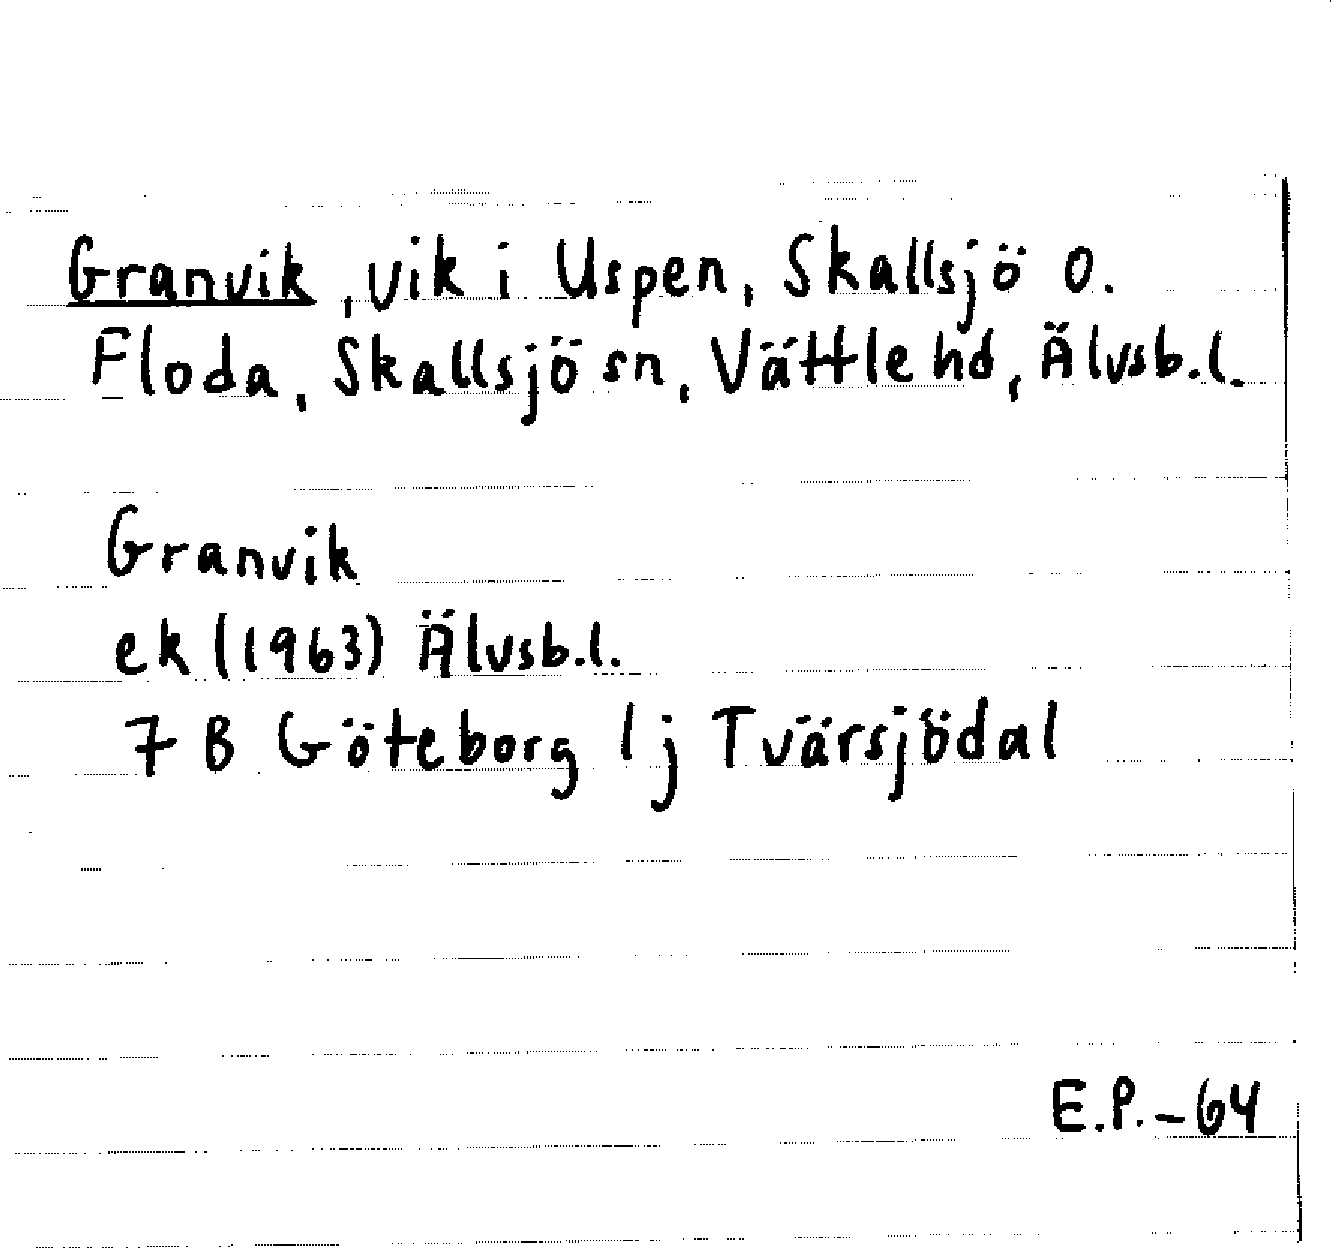 Granvik, vik i Uspen, Skallsjö o.
Floda, Skallsjö sn, Vättle hd, Älvsb.l.
Granvik
ek (1963) Älvsb.l.
7 B Göteborg 1j Tvärsjödal
E.P.-64